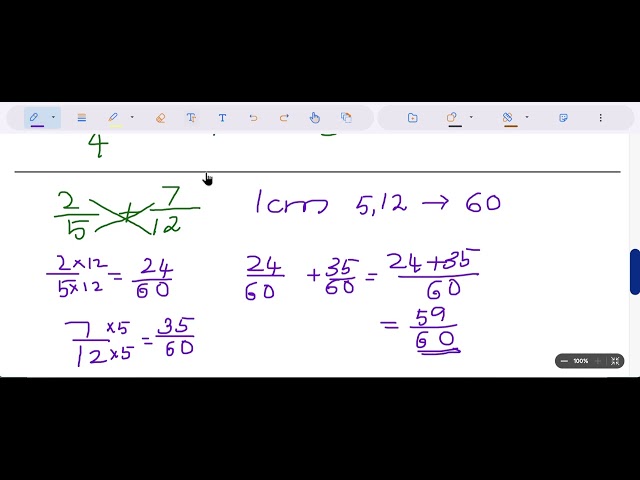 4
2/5 + 7/12 lcm 5,12 → 60
2×12/5×12 = 24/60 24/60 + 35/60 = 24+35/60
7×5/12×5 = 35/60 = 59/60
100%